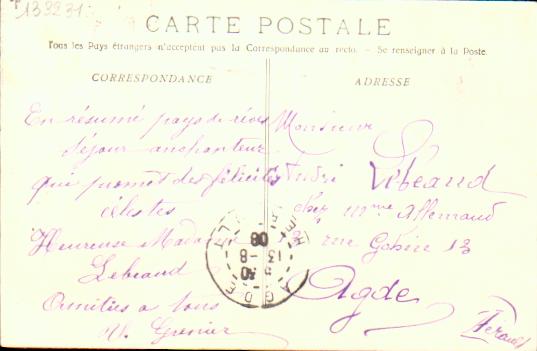 133231
CARTE POSTALE
Tous les Pays étrangers n'acceptent pas la Correspondance au recto. - Se renseigner à la Poste.
CORRESPONDANCE
En résumé pays de rêves
séjour anchanteur
qui promet des félicités
célestes
Heureuse Madame
Lebraud
Amitiés a tous
M. Grenier
ADRESSE
Monsieur
chez Mme Allemand
rue 13
Agde
Herault
AGDE
HERAULT
13-8
08